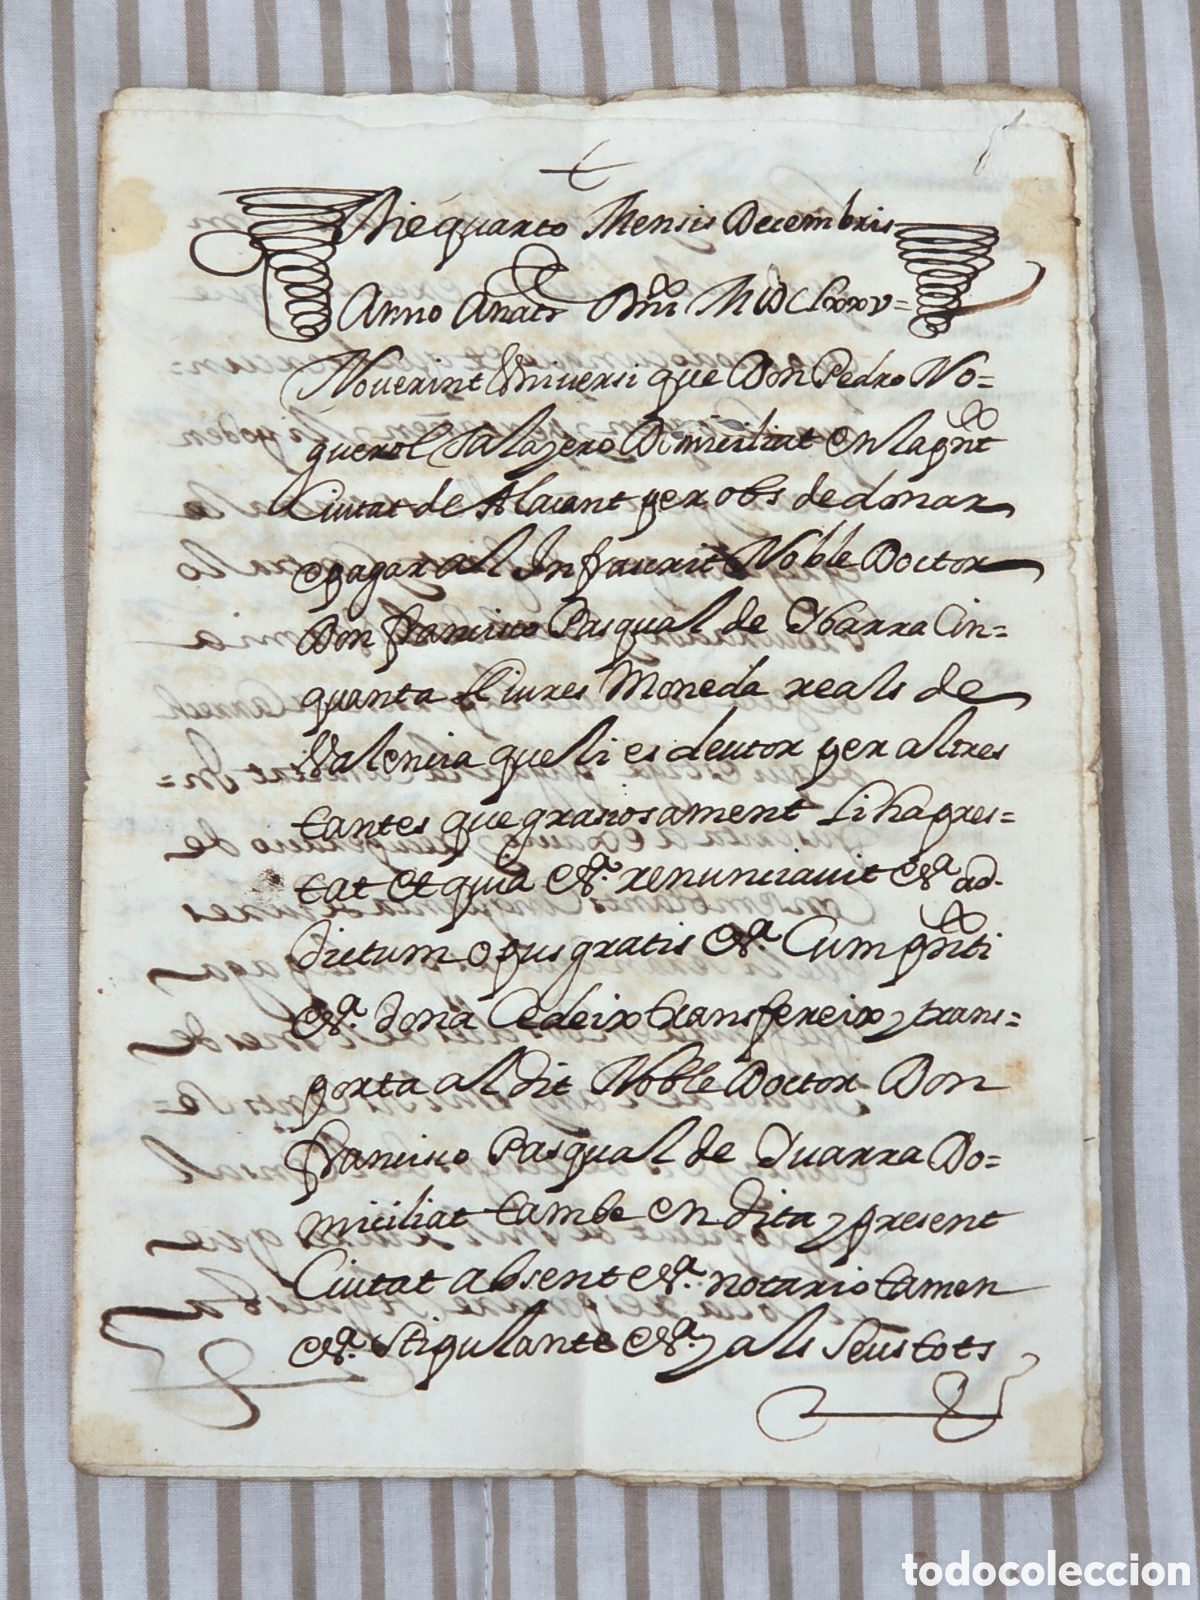 Die quarto Mensis Decembris
Anno Anatt Dñi MDCLxxxv=
Noverint Universi que Don Pedro No=
guerol Salazero Domiciliat en la pñt
Ciutat de Alacant per obs de donar
e pagar al Infraescrit Noble Doctor
Don francisco Pasqual de Ybarra Cin=
quanta lliures Moneda reals de
Valencia que li es deutor per altres
tantes que grasiosament li ha pres=
tat et quia &ª. renunciavit &ª. ad-
dictum opus gratis &ª. Cum pñti
&ª. dona Cedeix transfereix, y trans=
porta al dit Noble Doctor Don
francisco Pasqual de Yvarra Do=
miciliat tambe en dita, y present
Ciutat absent &ª. notario tamen
&ª. stipulante &ª. y als seus tots
todocoleccion